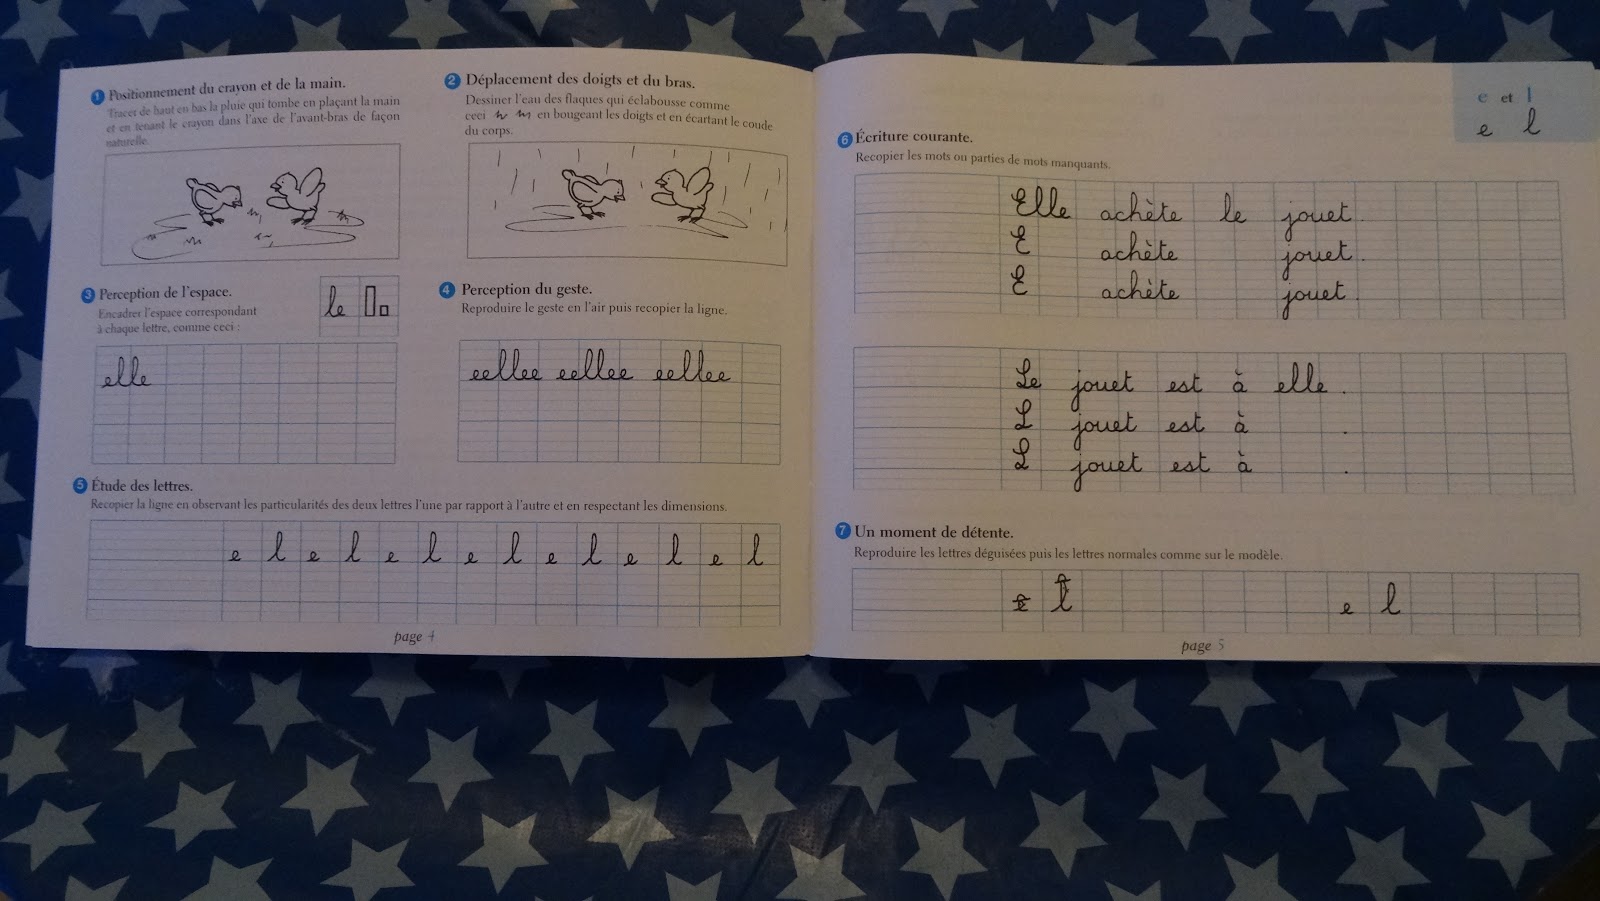 1 Positionnement du crayon et de la main.
Tracer de haut en bas la pluie qui tombe en plaçant la main
et en tenant le crayon dans l'axe de l'avant-bras de façon
naturelle.
2 Déplacement des doigts et du bras.
Dessiner l'eau des flaques qui éclabousse comme
ceci en bougeant les doigts et en écartant le coude
du corps.
3 Perception de l'espace.
Encadrer l'espace correspondant
à chaque lettre, comme ceci :
le
elle
4 Perception du geste.
Reproduire le geste en l'air puis recopier la ligne.
eellee eellee eellee
5 Étude des lettres.
Recopier la ligne en observant les particularités des deux lettres l'une par rapport à l'autre et en respectant les dimensions.
e l e l e l e l e l e l e l
page 4
e et l
e l
6 Écriture courante.
Recopier les mots ou parties de mots manquants.
Elle achète le jouet.
E achète jouet.
E achète jouet.
Le jouet est à elle.
L jouet est à .
L jouet est à .
7 Un moment de détente.
Reproduire les lettres déguisées puis les lettres normales comme sur le modèle.
e l e l
page 5